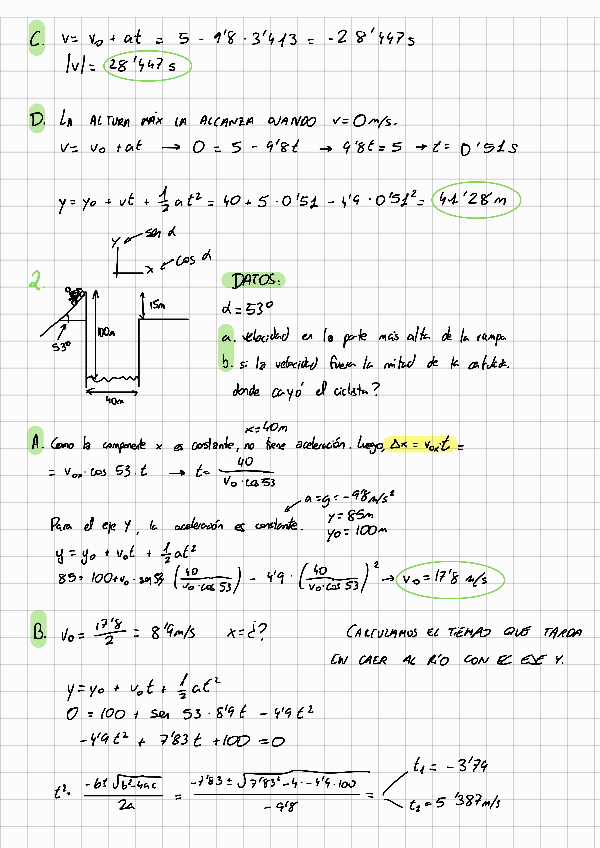 C. v = v₀ + at = 5 - 9'8 · 3'413 = -28'447 s
|v| = 28'447 s
D. LA ALTURA MÁX LA ALCANZA CUANDO v = 0 m/s.
v = v₀ + at → 0 = 5 - 9'8t → 9'8t = 5 → t = 0'51 s
y = y₀ + vt + 1/2 at² = 40 + 5 · 0'51 - 4'9 · 0'51² = 41'28 m
y sen α
x cos α
2.
DATOS:
53º
100m
15m
40m
α = 53º
a. velocidad en la parte más alta de la rampa
b. si la velocidad fuera la mitad de la
donde cayó el ciclista?
x = 40m
A. Como la componente x es constante, no tiene aceleración. Luego, Δx = v₀ₓ · t =
= v₀ₓ · cos 53 · t → t = 40 / v₀ · cos 53
a = g = -9'8 m/s²
Para el eje Y, la aceleración es constante. y = 85m
y₀ = 100m
y = y₀ + v₀t + 1/2 at²
85 = 100 + v₀ · sen 53 (40 / v₀ · cos 53) - 4'9 · (40 / v₀ · cos 53)² → v₀ = 17'8 m/s
B. v₀ = 17'8 / 2 = 8'9 m/s x = ¿? CALCULAMOS EL TIEMPO QUE TARDA
EN CAER AL RÍO CON EL EJE Y.
y = y₀ + v₀t + 1/2 at²
0 = 100 + sen 53 · 8'9t - 4'9t²
-4'9t² + 7'83t + 100 = 0
t = -b ± √b² - 4ac / 2a = -7'83 ± √7'83² - 4 · -4'9 · 100 / -9'8 =
t₁ = -3'79
t₂ = 5'387 m/s